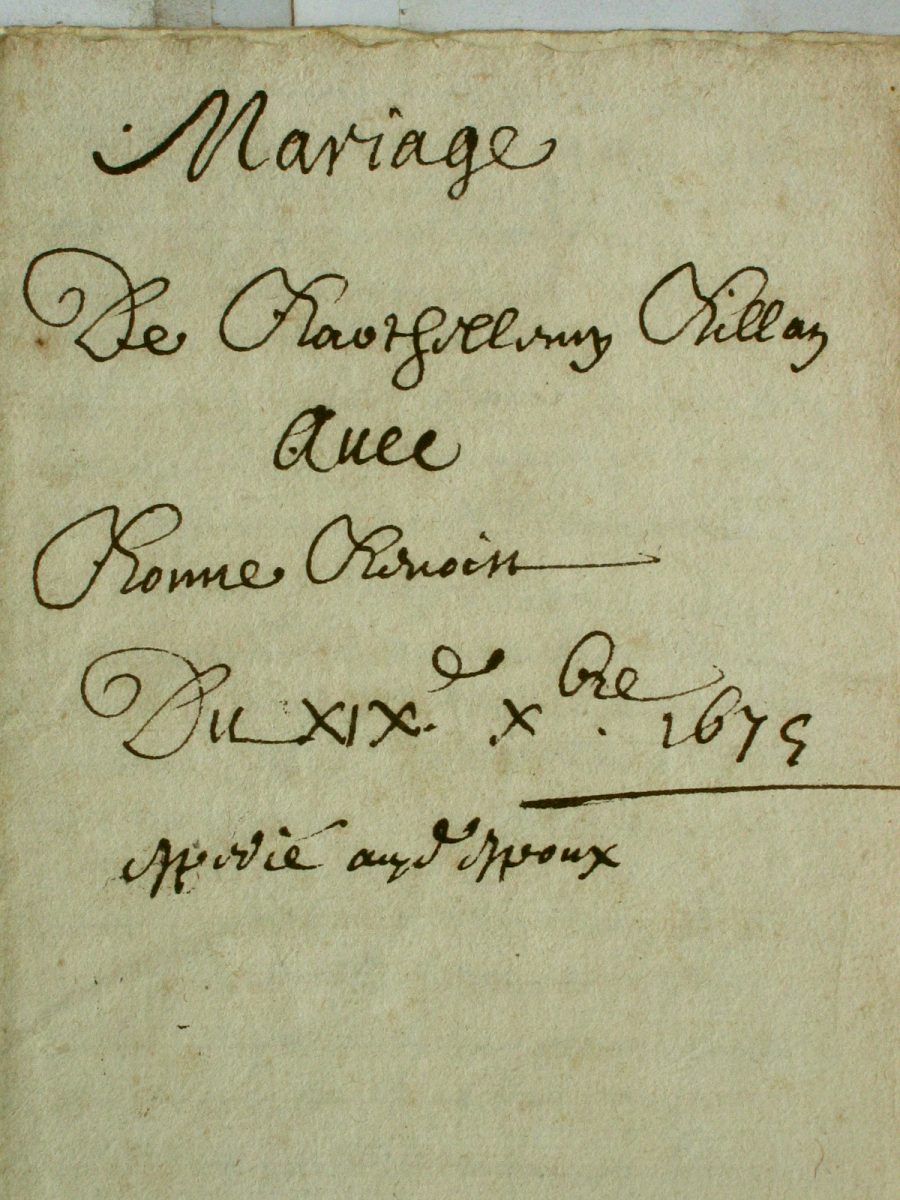 Mariage
De Barthellemy Billan
Auec
Bonne Benoist
Du XIXe. Xbre. 1675
expedié auxd espoux